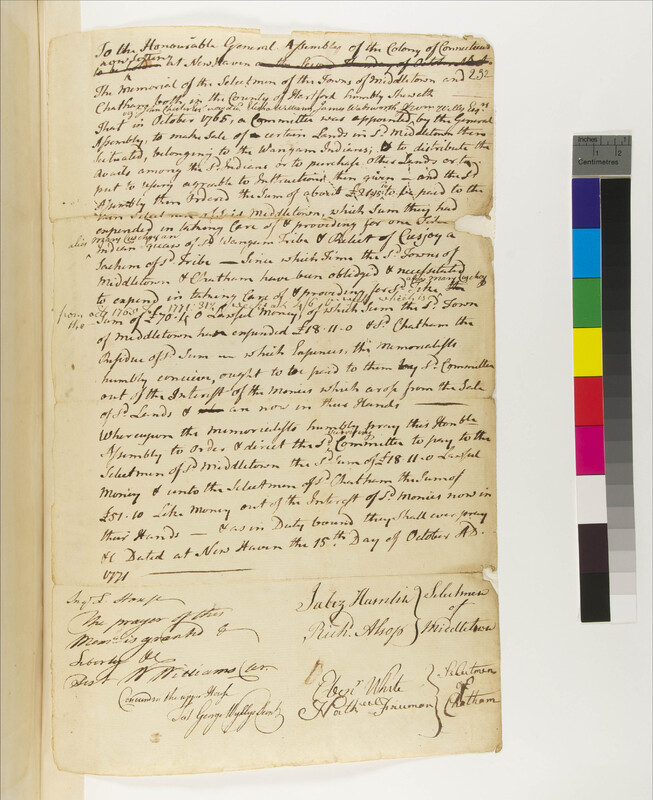 To the Honourable General Assembly of the Colony of Connecticut
now sitting at New Haven
232
The Memorial of the Selectmen of the Towns of Middletown and
Chatham both in the County of Hartford humbly Sheweth
That in October 1765, a Committee was appointed by the General
Assembly, to make Sale of certain Lands in Sd. Middletown then
Situated, belonging to the Wangam Indians; & to distribute the
Avails among the Sd. Indians or to purchase other Lands or to
put to Usury agreable to Instructions then given — and the Sd.
Assembly then Ordered the Sum of about to be paid to the
then Selectmen of Middletown, which Sum they had
expended in taking Care of & providing for one
alias Mary Cuschoy an
Indian Squaw of Sd. Wangum Tribe & Relict of Cusjoy a
Sachem of Sd. Tribe — Since which Time the Sd. Towns of
Middletown & Chatham have been oblidged & necessitated
alias Mary Cuschoy
to expend in taking Care of & providing for Sd. the
from Octr. 1765 to 1771
Sum of £70.1.0 Lawful Money, of which Sum the Sd. Town
of Middletown have expended £18.11.0 & Sd. Chatham the
Residue of Sd. Sum — which Expences, the Memorialists
humbly conceive, ought to be paid to them by Sd. Committee
out of the Interest of the Monies which arose from the Sale
of Sd. Lands & are now in their Hands
Whereupon the Memorialists humbly pray this Honble
Assembly to Order & direct the Sd. Committee to pay to the
Selectmen of Sd. Middletown the Sd. Sum of £18.11.0 Lawful
Money & unto the Selectmen of Sd. Chatham the Sum of
£51.10 Like Money out of the Interest of Sd. Monies now in
their Hands — & as in Duty bound they Shall ever pray
&c Dated at New Haven the 15th Day of October AD.
1771
In ye. L. House
The prayer of this
Meml. is granted &
Liberty &c
Test W Williams Cler
Concurred in the upper House
Test George Wyllys Secrety
Jabez Hamlin
Richd. Alsop
Selectmen
of
Middletown
Ebenr. White
Nathll. Freeman
Selectmen
of
Chatham
Inches
1
2
Centimetres